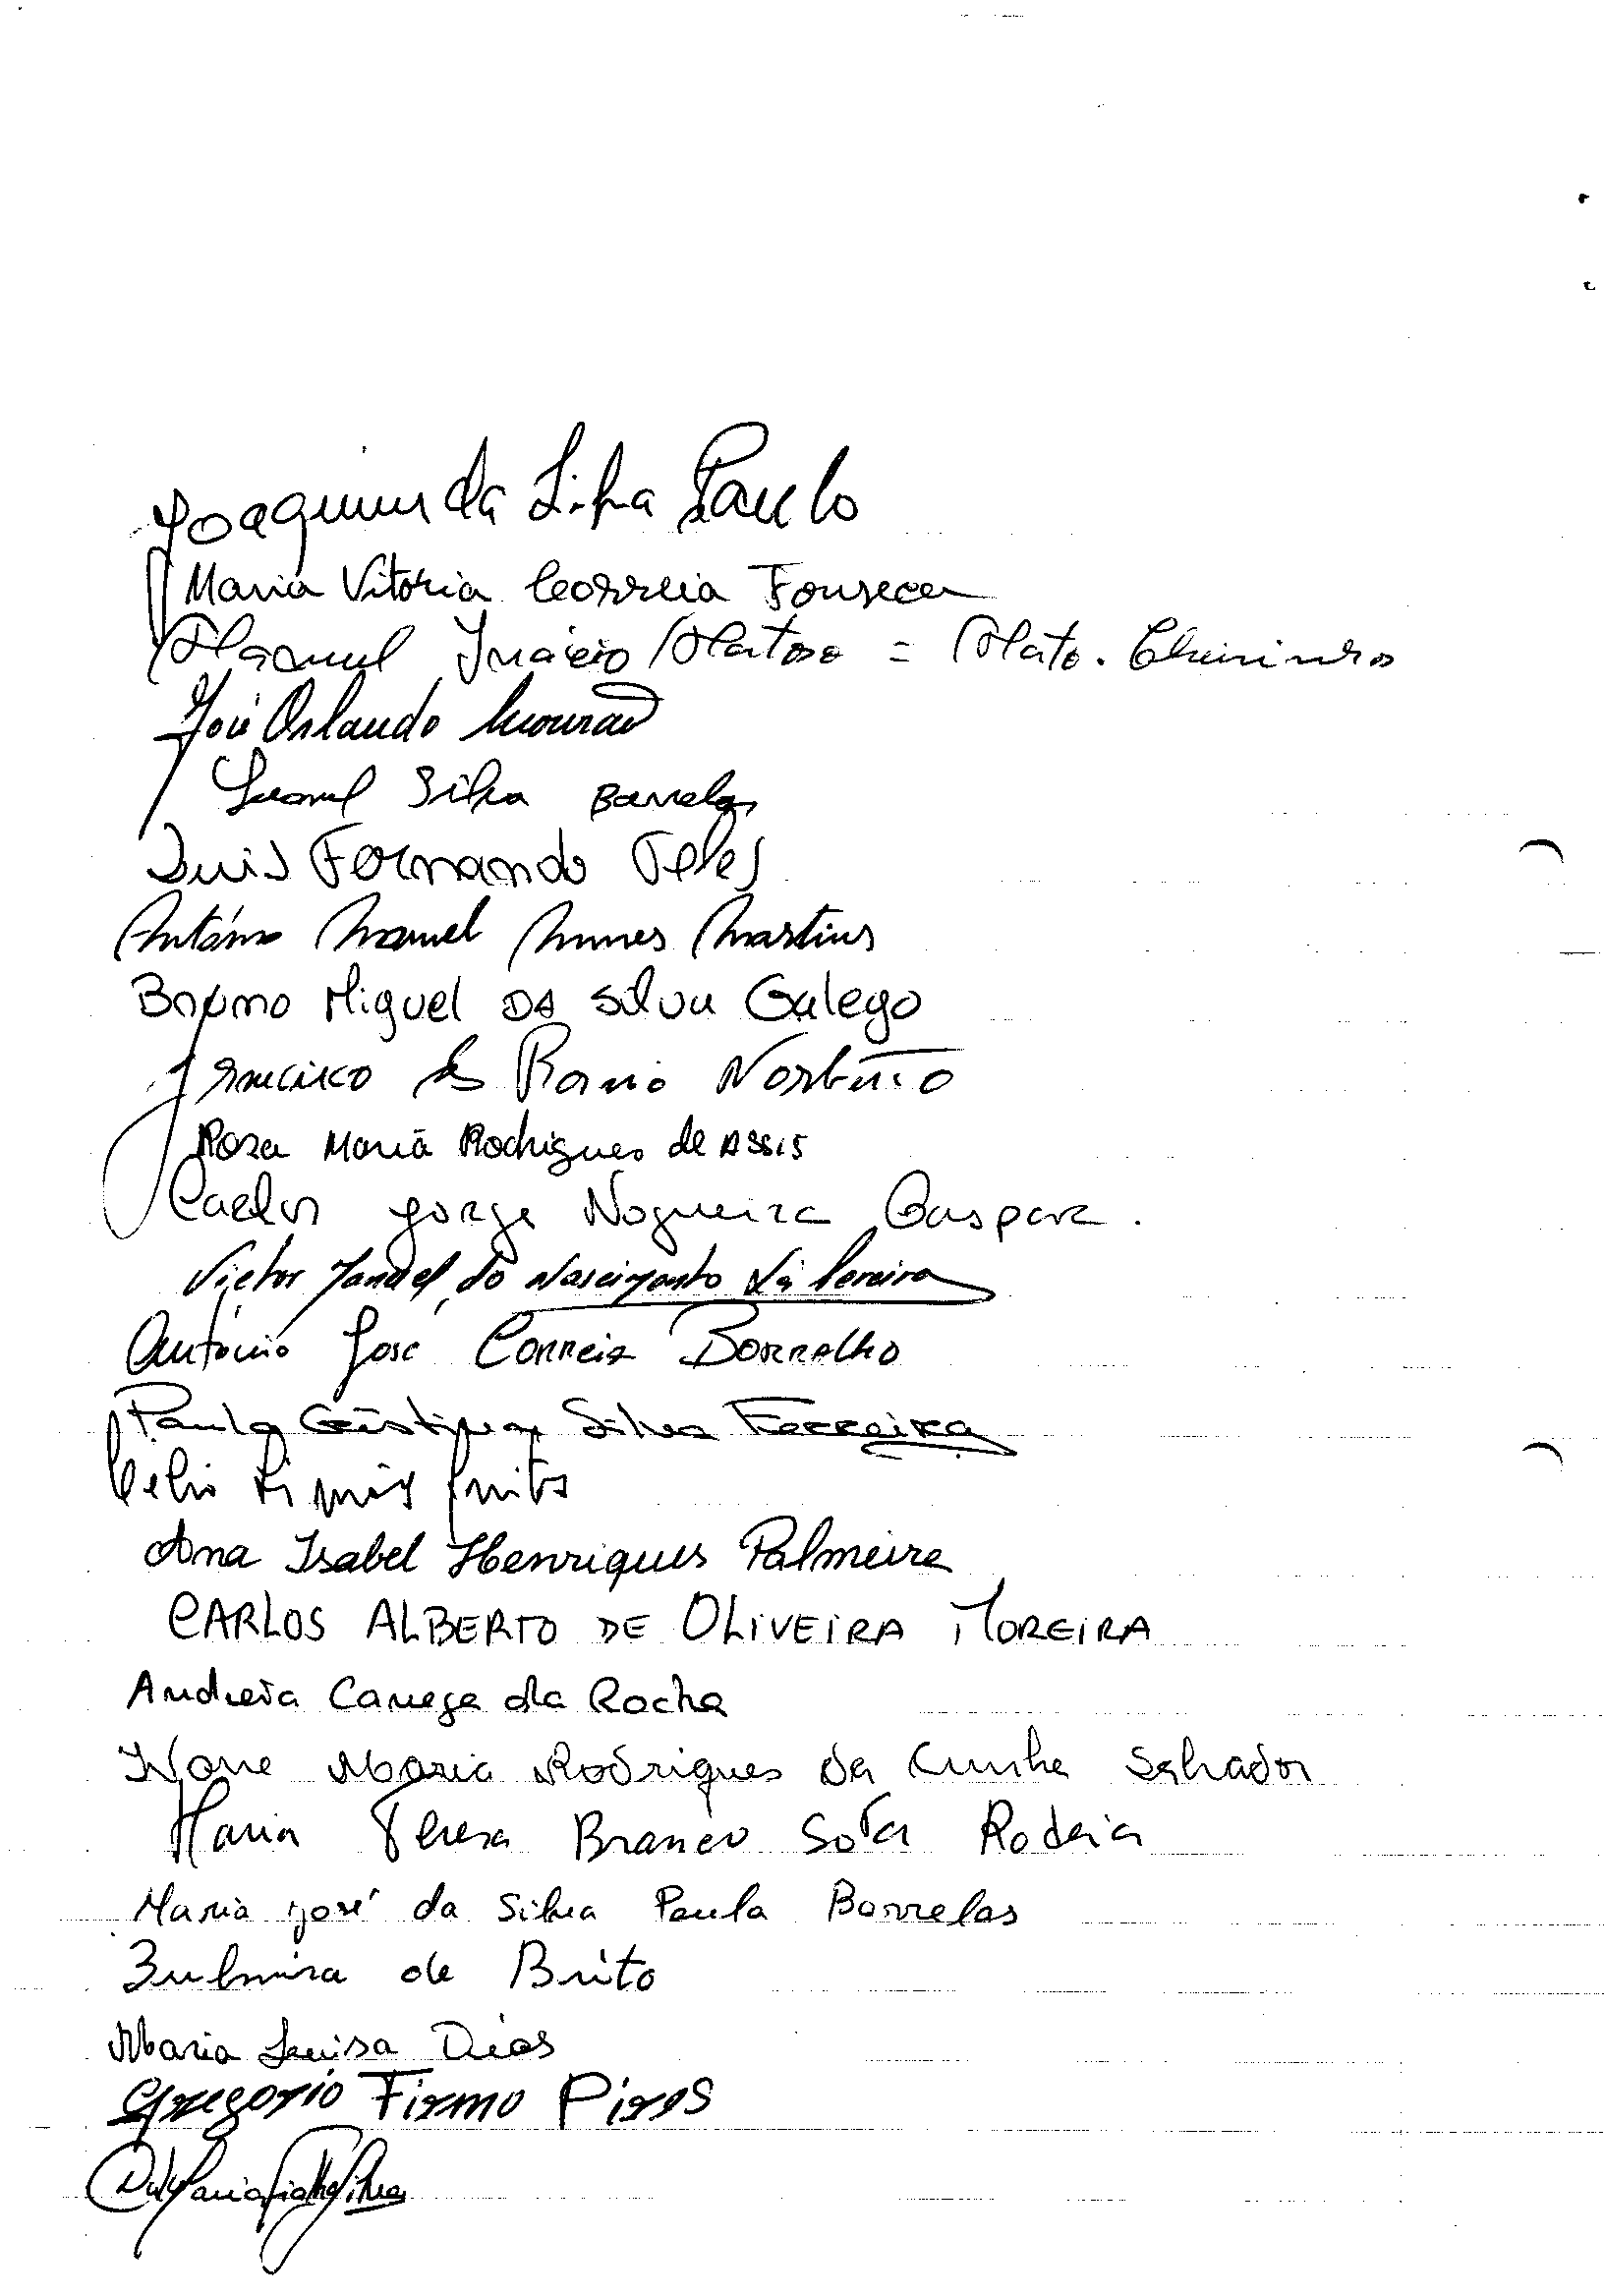 Joaquim da Silva Paulo
Maria Vitória Correia Fonseca
Manuel Inácio Matoso = Mato. Cheirinhos
José Orlando Mourão
Leonel Silva Barrelas
Luis Fernando Teles
António Manuel Nunes Martins
Bruno Miguel DA Silva Galego
Francisco Norberto
Rosa Maria Rodrigues de Assis
Carlos Jorge Nogueira Gaspar.
Victor Manuel do Nascimento Sá Pereira
António José Correia Borralho
Paula Cristina Silva Ferreira
Célio
Ana Isabel Henriques Palmeira
CARLOS ALBERTO DE OLIVEIRA MOREIRA
Andreia Carrega da Rocha
Ivone Maria Rodrigues da Cunha Salvador
Maria Teresa Branco Sota Rodeia
Maria José da Silva Paula Barrelas
Zulmira de Brito
Maria Luisa Dias
Gregorio Firmo Pires
Maria Silva